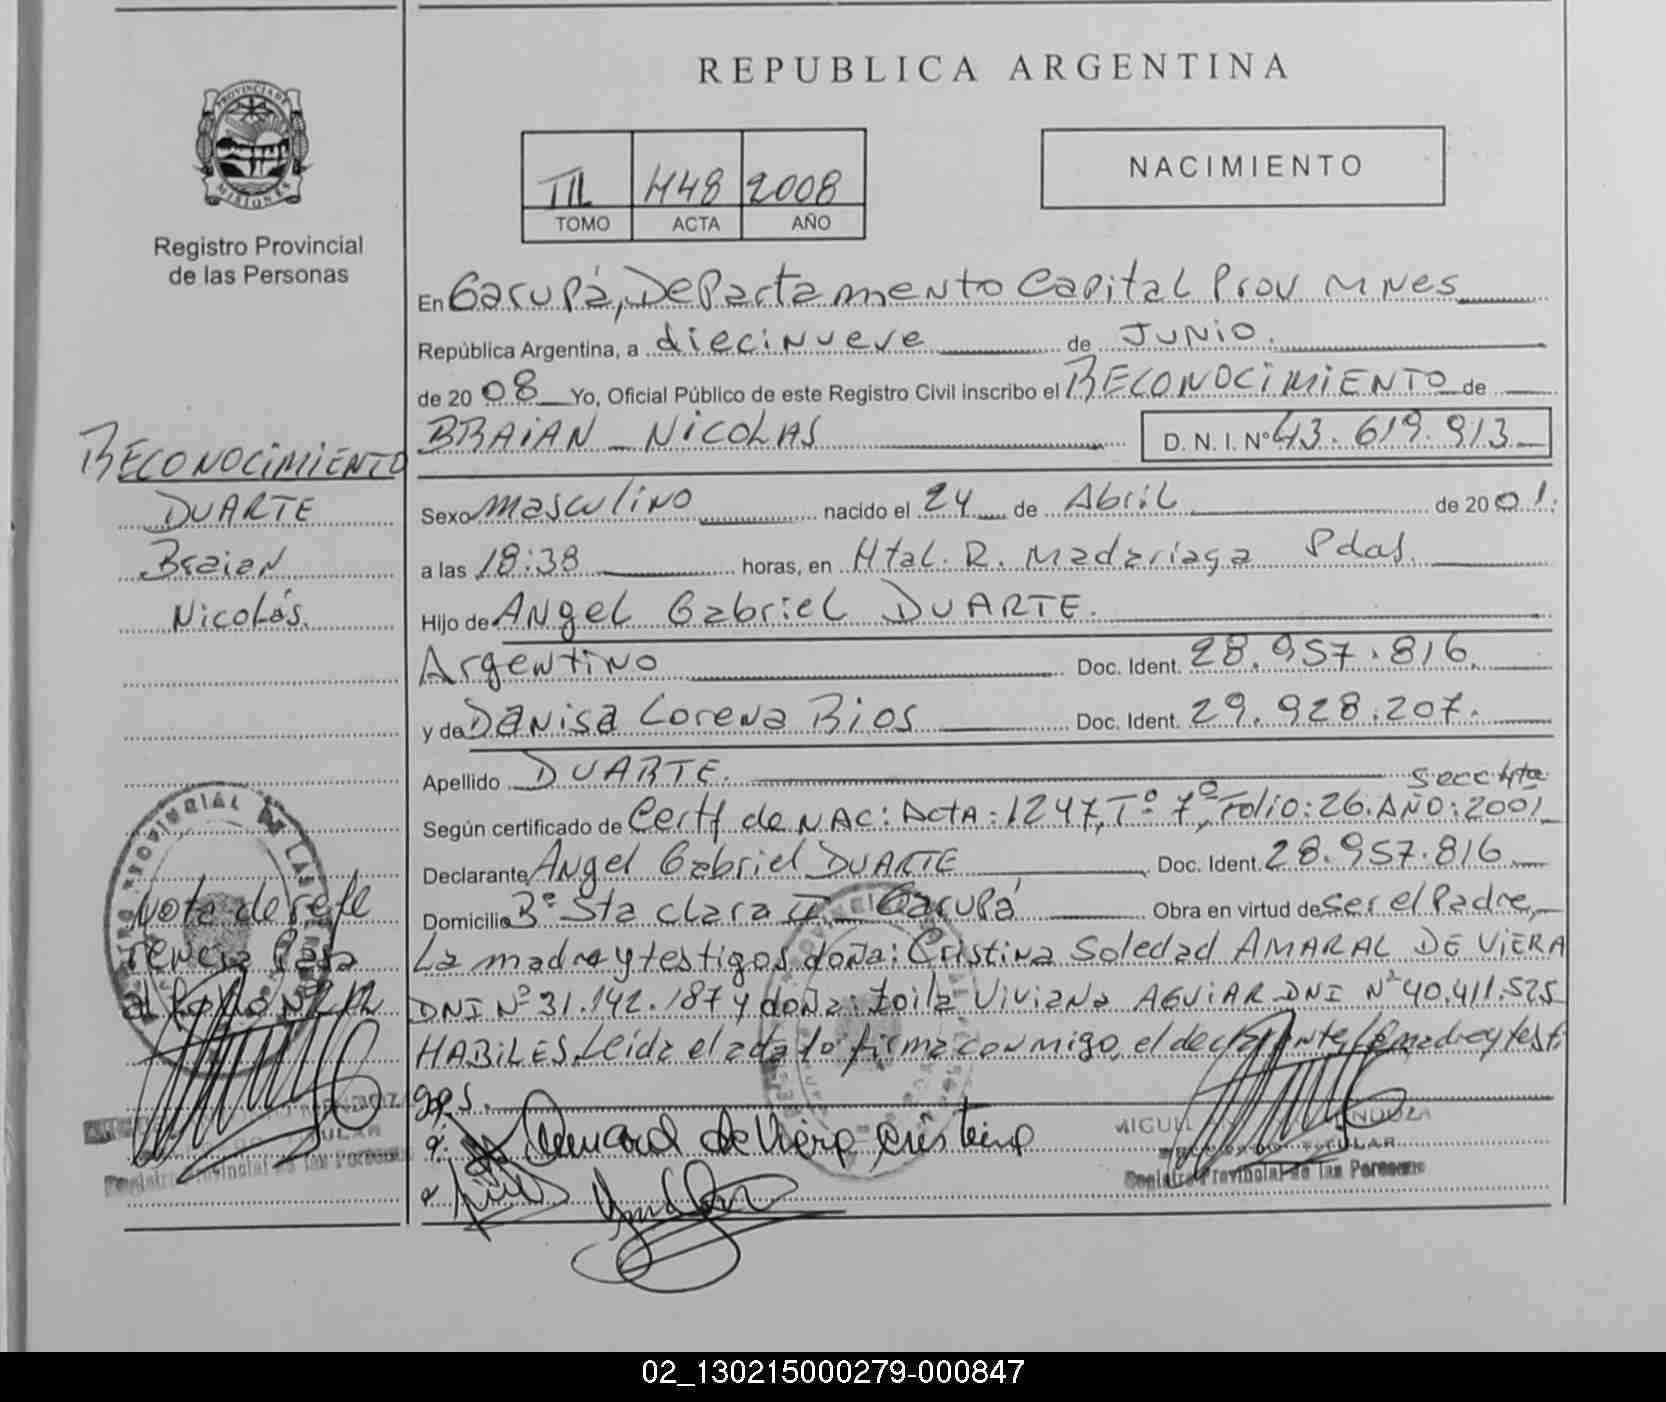 REPUBLICA ARGENTINA
PROVINCIA DE
MISIONES
Registro Provincial
de las Personas
448 2008
TOMO ACTA AÑO
NACIMIENTO
En Garupá, Departamento Capital Prov Mnes
República Argentina, a diecinueve de Junio.
de 2008 Yo, Oficial Público de este Registro Civil inscribo el RECONOCIMIENTO de
BRAIAN NICOLAS D. N. I. Nº 43.619.913
RECONOCIMIENTO
DUARTE
Braian
Nicolás.
Sexo masculino nacido el 24 de Abril de 2001.
a las 18:38 horas, en Htal. R. Madariaga Pdas.
Hijo de Angel Gabriel DUARTE.
Argentino Doc. Ident. 28.957.816.
y de Danisa Lorena Rios Doc. Ident. 29.928.207.
Apellido DUARTE. Secc 4ta
Según certificado de Certf de NAC: Acta: 1247, Tº 7º, Folio: 26. AÑO: 2001
Declarante Angel Gabriel DUARTE Doc. Ident. 28.957.816
Domicilio Bº Sta Clara II Garupá Obra en virtud de ser el Padre,
La madre y testigos doña: Cristina Soledad AMARAL DE VIERA
DNI Nº 31.142.187 y doña: Zoila Viviana AGUIAR DNI Nº 40.411.525
HABILES. Leida el acta lo firma conmigo, el declarante, la madre y testi
gos.
Nota de refe
rencia Pasa
al folio Nº
Amaral de Viera Cristina
MIGUEL MENDOZA
TITULAR
Registro Provincial de las Personas
Registro Provincial de las Personas
02_130215000279-000847